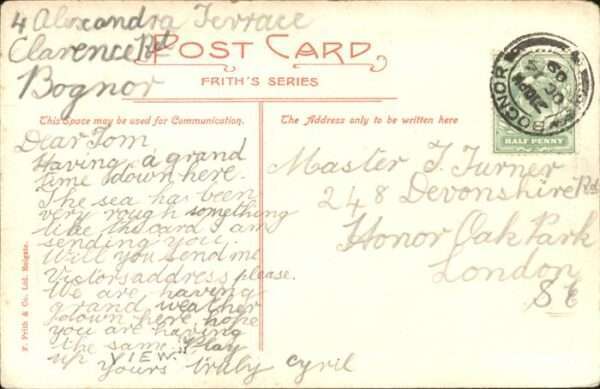 4 Alexandra Terrace
Clarence Rd
Bognor
POST CARD
FRITH'S SERIES
This Space may be used for Communication.
The Address only to be written here
Dear Tom
Having a grand
time down here.
The sea has been
very rough something
like this card I am
sending you.
Will you send me
Victors address please.
We are having
grand weather
down here hope
you are having
the same. "Play
up VIEW."
Yours truly Cyril
Master T. Turner
248 Devonshire Rd
Honor Oak Park
London
S E
BOGNOR
HALF PENNY
F. Frith & Co. Ltd. Reigate.